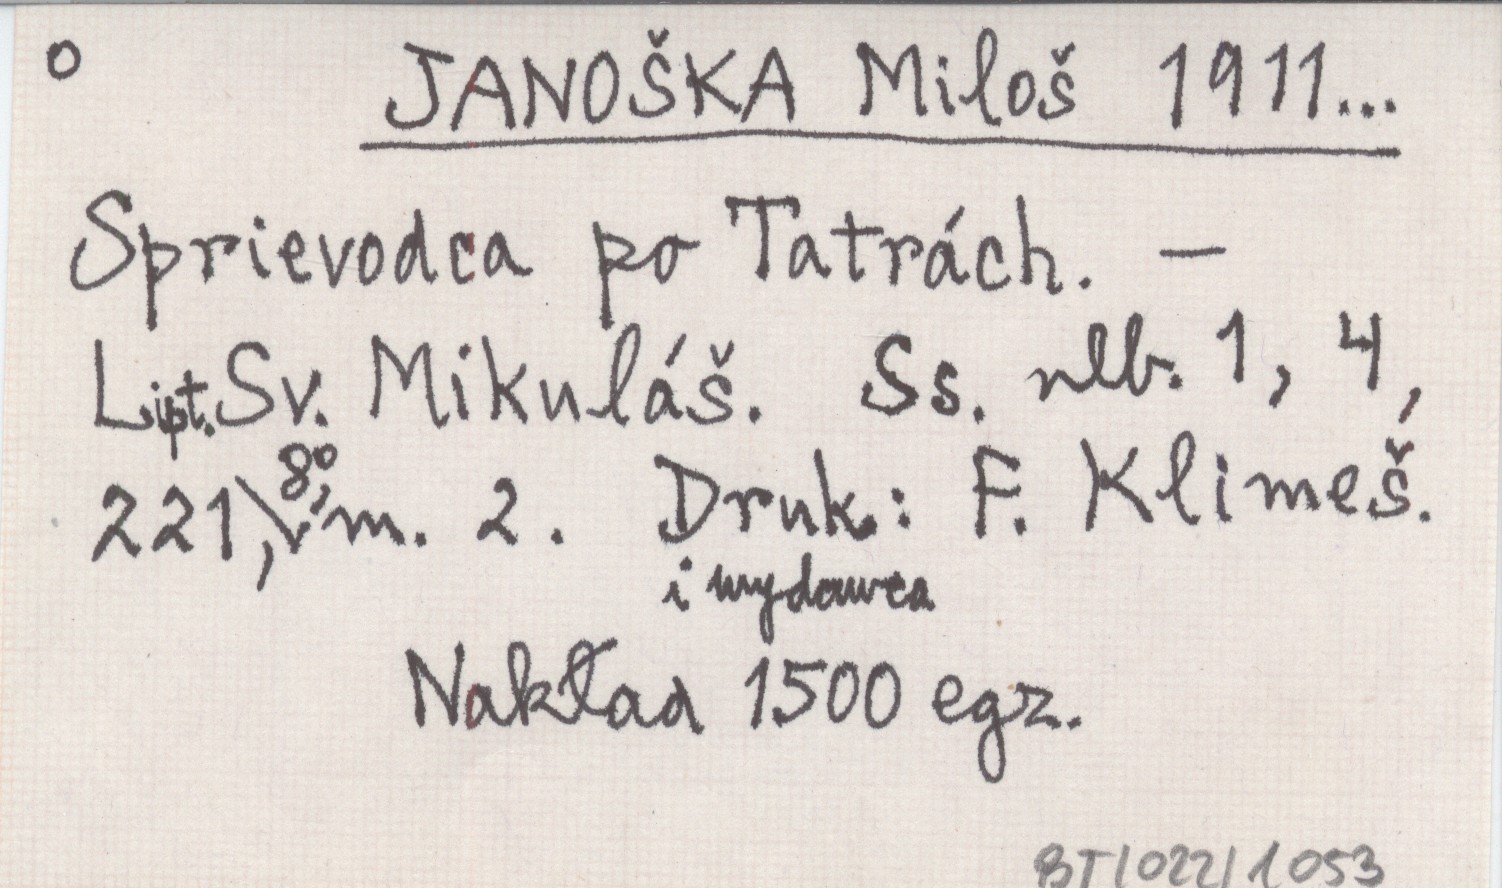 o JANOŠKA Miloš 1911...
Sprievodca po Tatrách. —
Lipt. Sv. Mikuláš. Ss. nlb. 1, 4,
221, 8°, m. 2. Druk.: F. Klimeš.
i wydawca
Nakład 1500 egz.
BT/022/1053